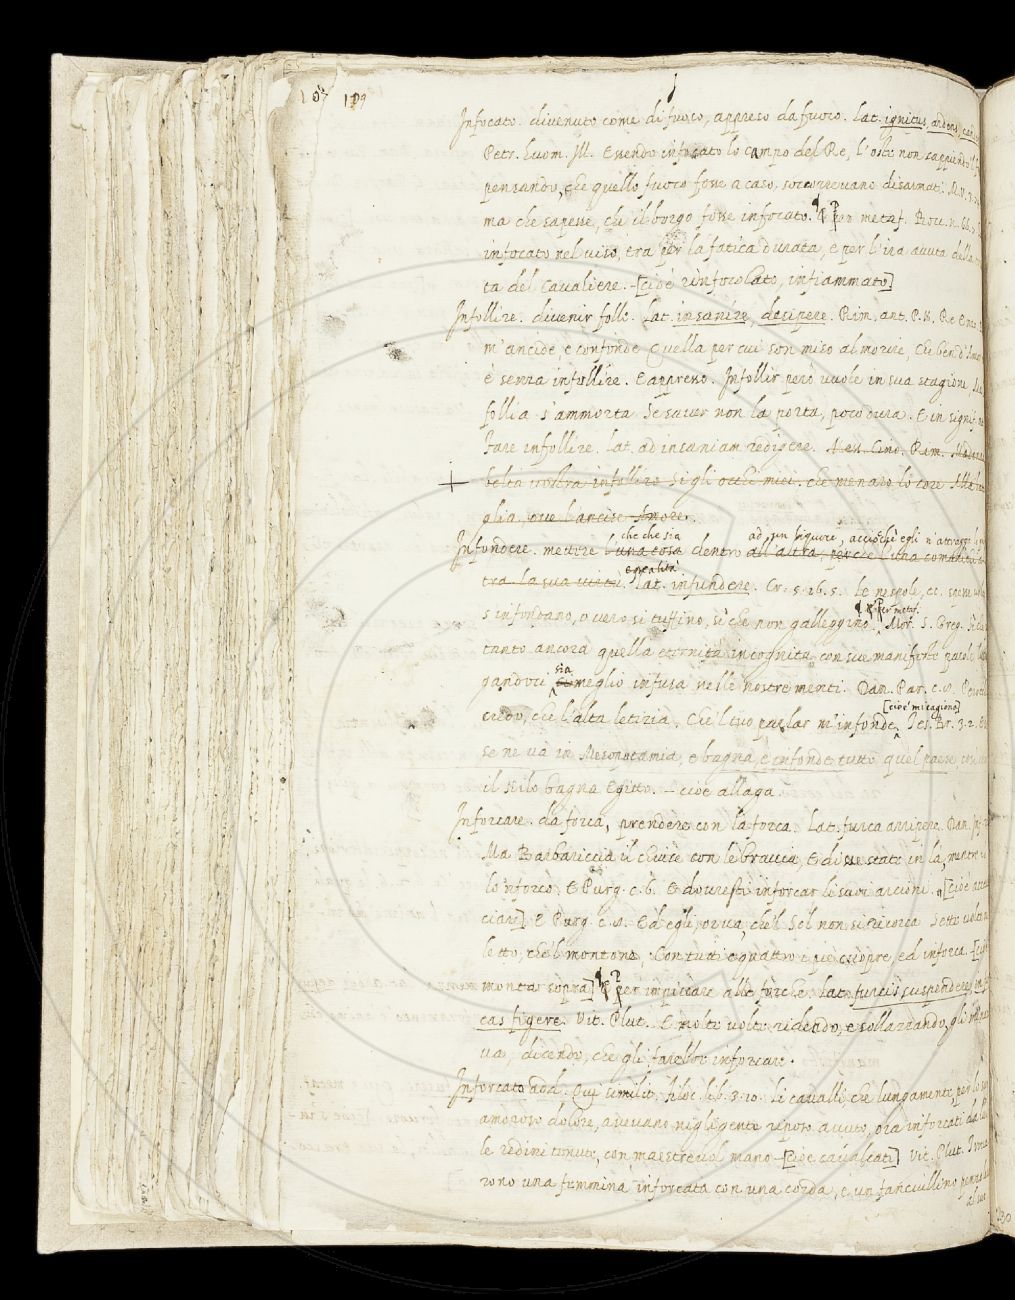 157 109
Infocato. divenuto come di fuoco, appreso da fuoco. Lat. ignitus, ardens,
Petr. huom. Ill. Essendo infocato lo campo del Re, l'oste non sappiendo
pensando, che quello fuoco fosse a caso, soccorrevano disarmati. M.V. 3.
ma che sapesse, che il borgo fosse infocato. ¶ E per metaf. Bocc. n. 66.
infocato nel viso, tra per la fatica durata, e per l'ira avuta della
ta del Cavaliere. - [cioè rinfocolato, infiammato]
Infollire. divenir folle. Lat. insanire, desipere. Rim. ant. P.N. Re Enzo.
m'ancide, e confonde Quella per cui son miso al morire, Che ben d'Amor
è senza infollire. E appresso. Infollir però vuole in sua stagione
follia s'ammorta Se saver non la porta, poco dura. E in signif.
fare infollire. Lat. ad insaniam redigere. Mes. Cino. Rim.
+ beltà vostra infollire sì gli occhi miei, che menaro lo core
glia, ove l'ancise Amore.
che che sia ad un liquore, acciocchè egli n'attragga
Infondere. mettere l'una cosa dentro all'altra, perchè l'una comunichi
e qualità
tra la sua virtù. Lat. infundere. Cr. 5. 16. 5. Le nespole, ec.
¶ E Per metaf.
s'infondano, o vero si tuffino, sì che non galleggino. Mor. S. Greg.
tanto ancora quella eternità incognita con sue manifeste parole
sia
gandoci meglio infusa nelle nostre menti. Dan. Par. c. 8.
[cioè mi cagiona]
credo, che l'alta letizia, Che'l tuo parlar m'infonde, Tes. Br. 3. 2.
se ne va in Mesopotamia, e bagna, e infonde tutto quel paese
il Nilo bagna Egitto. - cioè allaga.
Inforcare. da forca, prendere con la forca. Lat. furca arripere. Dan. Inf.
Ma Barbariccia il chiuse con le braccia, E disse state in là, mentr'
lo'nforco. E Purg. c. 6. E dovresti inforcar li suoi arcioni. [cioè
ciare] E Purg. c. 8. Ed egli, or va, che'l Sol non si ricorca Sette volte
letto, che'l montone Con tutti e quattro i piè cuopre, ed inforca. -
montar sopra] ¶ E per impiccare alle forche. Lat. furcis suspendere,
cas figere. Vit. Plut. E molte volte ridendo, e sollazzando, gli
va, dicendo, che gli farebbe inforcare.
Inforcato add. Qui similit. filoc. lib. 3. 10. Li cavalli, che lungamente, per lo
amoroso dolore, avevano negligente riposo avuto, ora inforcati
le redini tenute, con maestrevol mano - [cioè cavalcati] Vit. Plut.
rono una femmina inforcata con una corda, e un fanciullino
al suo